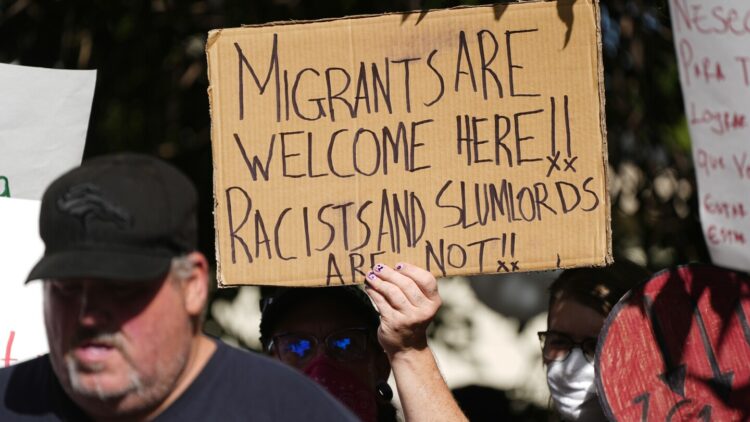 MIGRANTS ARE
WELCOME HERE!!
RACISTS AND SLUMLORDS
ARE NOT!!
PARA T
LOGRAR
QUE V
ESTAR